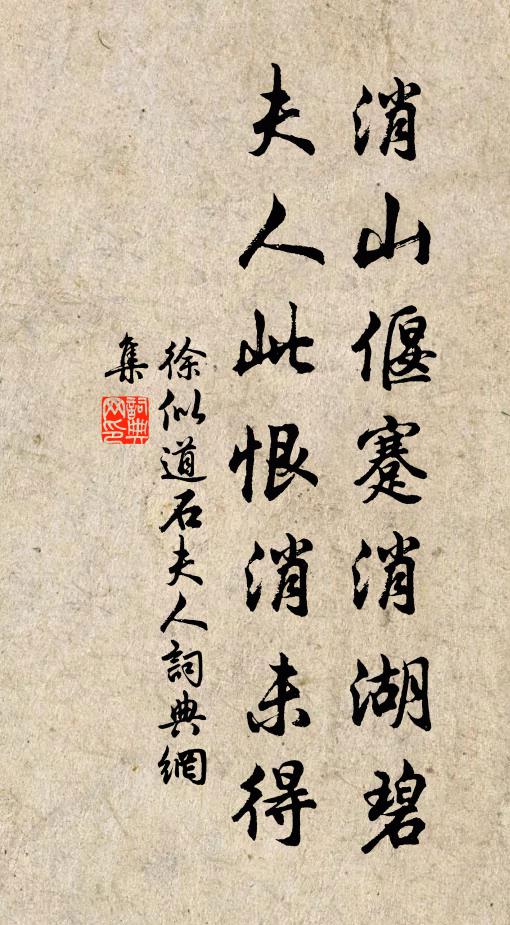 消山偃蹇消湖碧
夫人此恨消未得
徐似道石夫人詞典網
集
詞典
网印